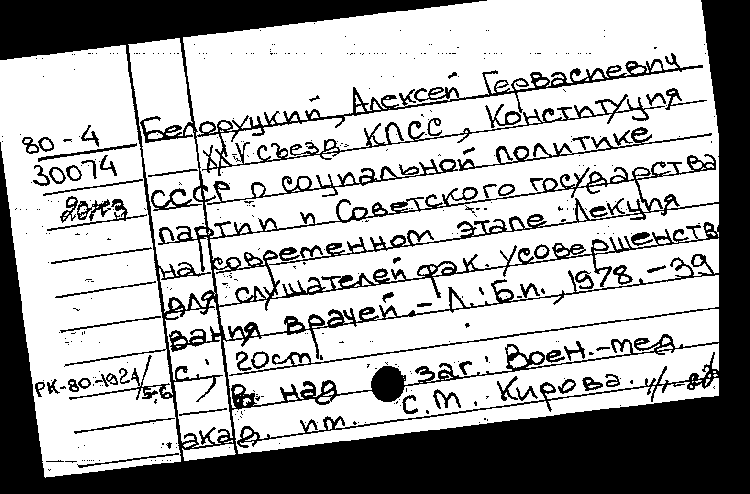 80-4
30074
Белоруцкий, Алексей Гервасиевич
XXV съезд КПСС, Конституция
СССР о социальной политике
партии и Советского государства
на современном этапе: Лекция
для слушателей фак. усовершенств
вания врачей. - Л.: Б.и., 1978. - 39
с.; 20см.
В над заг.: Воен.-мед.
акад. им. С.М. Кирова.
РК-80-1921/5;6